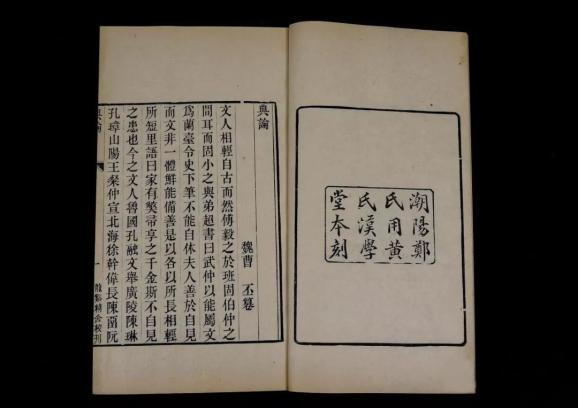 潮陽鄭
氏用黃
氏漢學
堂本刻
典論
魏曹 丕纂
文人相輕自古而然傅毅之於班固伯仲之
間耳而固小之與弟超書曰武仲以能屬文
爲蘭臺令史下筆不能自休夫人善於自見
而文非一體鮮能備善是以各以所長相輕
所短里語曰家有獘帚享之千金斯不自見
之患也今之文人魯國孔融文舉廣陵陳琳
孔璋山陽王粲仲宣北海徐幹偉長陳畱阮
典論
一
龍谿精舍校刊